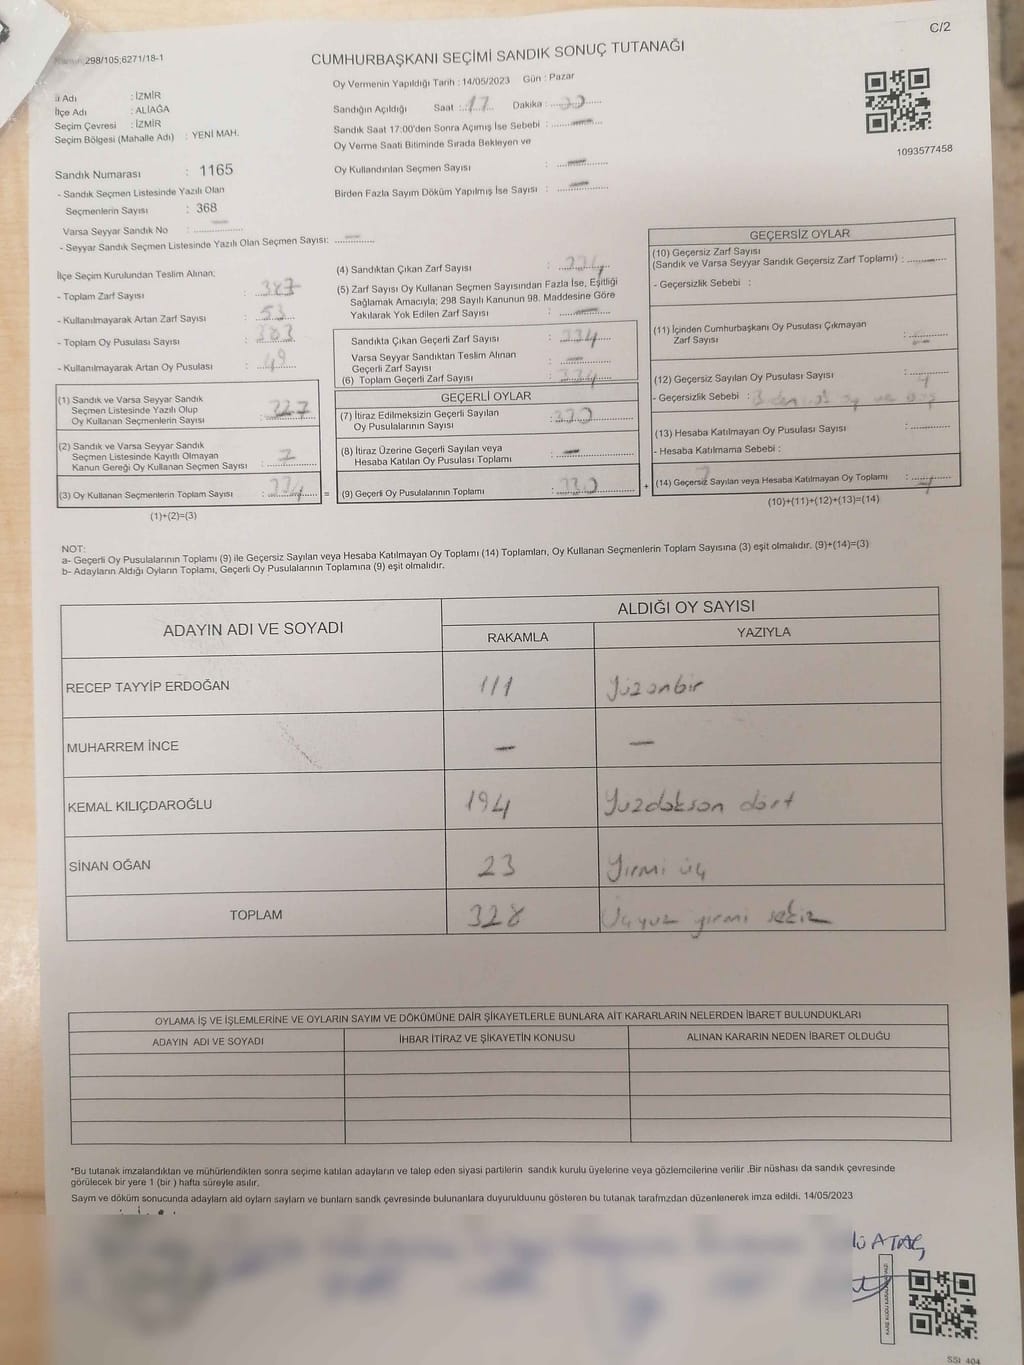 C/2
298/105;6271/18-1
CUMHURBAŞKANI SEÇİMİ SANDIK SONUÇ TUTANAĞI
Oy Vermenin Yapıldığı Tarih : 14/05/2023 Gün : Pazar
İl Adı : İZMİR
İlçe Adı : ALİAĞA
Seçim Çevresi : İZMİR
Seçim Bölgesi (Mahalle Adı) : YENİ MAH.
Sandığın Açıldığı Saat : 17 Dakika :
Sandık Saat 17:00'den Sonra Açımış İse Sebebi : —
Oy Verme Saati Bitiminde Sırada Bekleyen ve
Oy Kullandırılan Seçmen Sayısı : —
Birden Fazla Sayım Döküm Yapılmış İse Sayısı : —
1093577458
Sandık Numarası : 1165
- Sandık Seçmen Listesinde Yazılı Olan
Seçmenlerin Sayısı : 368
Varsa Seyyar Sandık No : —
- Seyyar Sandık Seçmen Listesinde Yazılı Olan Seçmen Sayısı: —
İlçe Seçim Kurulundan Teslim Alınan;
- Toplam Zarf Sayısı : 387
- Kullanılmayarak Artan Zarf Sayısı : 53
- Toplam Oy Pusulası Sayısı : 383
- Kullanılmayarak Artan Oy Pusulası : 49
(1) Sandık ve Varsa Seyyar Sandık
Seçmen Listesinde Yazılı Olup
Oy Kullanan Seçmenlerin Sayısı : 327
(2) Sandık ve Varsa Seyyar Sandık
Seçmen Listesinde Kayıtlı Olmayan
Kanun Gereği Oy Kullanan Seçmen Sayısı : 7
(3) Oy Kullanan Seçmenlerin Toplam Sayısı : 334 =
(1)+(2)=(3)
(4) Sandıktan Çıkan Zarf Sayısı : 334
(5) Zarf Sayısı Oy Kullanan Seçmen Sayısından Fazla İse, Eşitliği
Sağlamak Amacıyla; 298 Sayılı Kanunun 98. Maddesine Göre
Yakılarak Yok Edilen Zarf Sayısı : —
Sandıkta Çıkan Geçerli Zarf Sayısı : 334
Varsa Seyyar Sandıktan Teslim Alınan : —
Geçerli Zarf Sayısı
(6) Toplam Geçerli Zarf Sayısı : 334
GEÇERLİ OYLAR
(7) İtiraz Edilmeksizin Geçerli Sayılan : 330
Oy Pusulalarının Sayısı
(8) İtiraz Üzerine Geçerli Sayılan veya : —
Hesaba Katılan Oy Pusulası Toplamı
(9) Geçerli Oy Pusulalarının Toplamı : 330 +
GEÇERSİZ OYLAR
(10) Geçersiz Zarf Sayısı
(Sandık ve Varsa Seyyar Sandık Geçersiz Zarf Toplamı) : —
- Geçersizlik Sebebi :
(11) İçinden Cumhurbaşkanı Oy Pusulası Çıkmayan
Zarf Sayısı : —
(12) Geçersiz Sayılan Oy Pusulası Sayısı : 4
- Geçersizlik Sebebi :
(13) Hesaba Katılmayan Oy Pusulası Sayısı :
- Hesaba Katılmama Sebebi :
(14) Geçersiz Sayılan veya Hesaba Katılmayan Oy Toplamı : 4
(10)+(11)+(12)+(13)=(14)
NOT:
a- Geçerli Oy Pusulalarının Toplamı (9) ile Geçersiz Sayılan veya Hesaba Katılmayan Oy Toplamı (14) Toplamları, Oy Kullanan Seçmenlerin Toplam Sayısına (3) eşit olmalıdır. (9)+(14)=(3)
b- Adayların Aldığı Oyların Toplamı, Geçerli Oy Pusulalarının Toplamına (9) eşit olmalıdır.
ADAYIN ADI VE SOYADI
ALDIĞI OY SAYISI
RAKAMLA YAZIYLA
RECEP TAYYİP ERDOĞAN 111 Yüzonbir
MUHARREM İNCE — —
KEMAL KILIÇDAROĞLU 194 Yüzdoksan dört
SİNAN OĞAN 23 Yirmi üç
TOPLAM 328 Üçyüz yirmi sekiz
OYLAMA İŞ VE İŞLEMLERİNE VE OYLARIN SAYIM VE DÖKÜMÜNE DAİR ŞİKAYETLERLE BUNLARA AİT KARARLARIN NELERDEN İBARET BULUNDUKLARI
ADAYIN ADI VE SOYADI İHBAR İTİRAZ VE ŞİKAYETİN KONUSU ALINAN KARARIN NEDEN İBARET OLDUĞU
*Bu tutanak imzalandıktan ve mühürlendikten sonra seçime katılan adayların ve talep eden siyasi partilerin sandık kurulu üyelerine veya gözlemcilerine verilir .Bir nüshası da sandık çevresinde
görülecek bir yere 1 (bir ) hafta süreyle asılır.
Sayım ve döküm sonucunda adaylarn ald oylarn saylarn ve bunlarn sandk çevresinde bulunanlara duyurulduunu gösteren bu tutanak tarafmzdan düzenlenerek imza edildi. 14/05/2023
lü ATAÇ
SSI 404